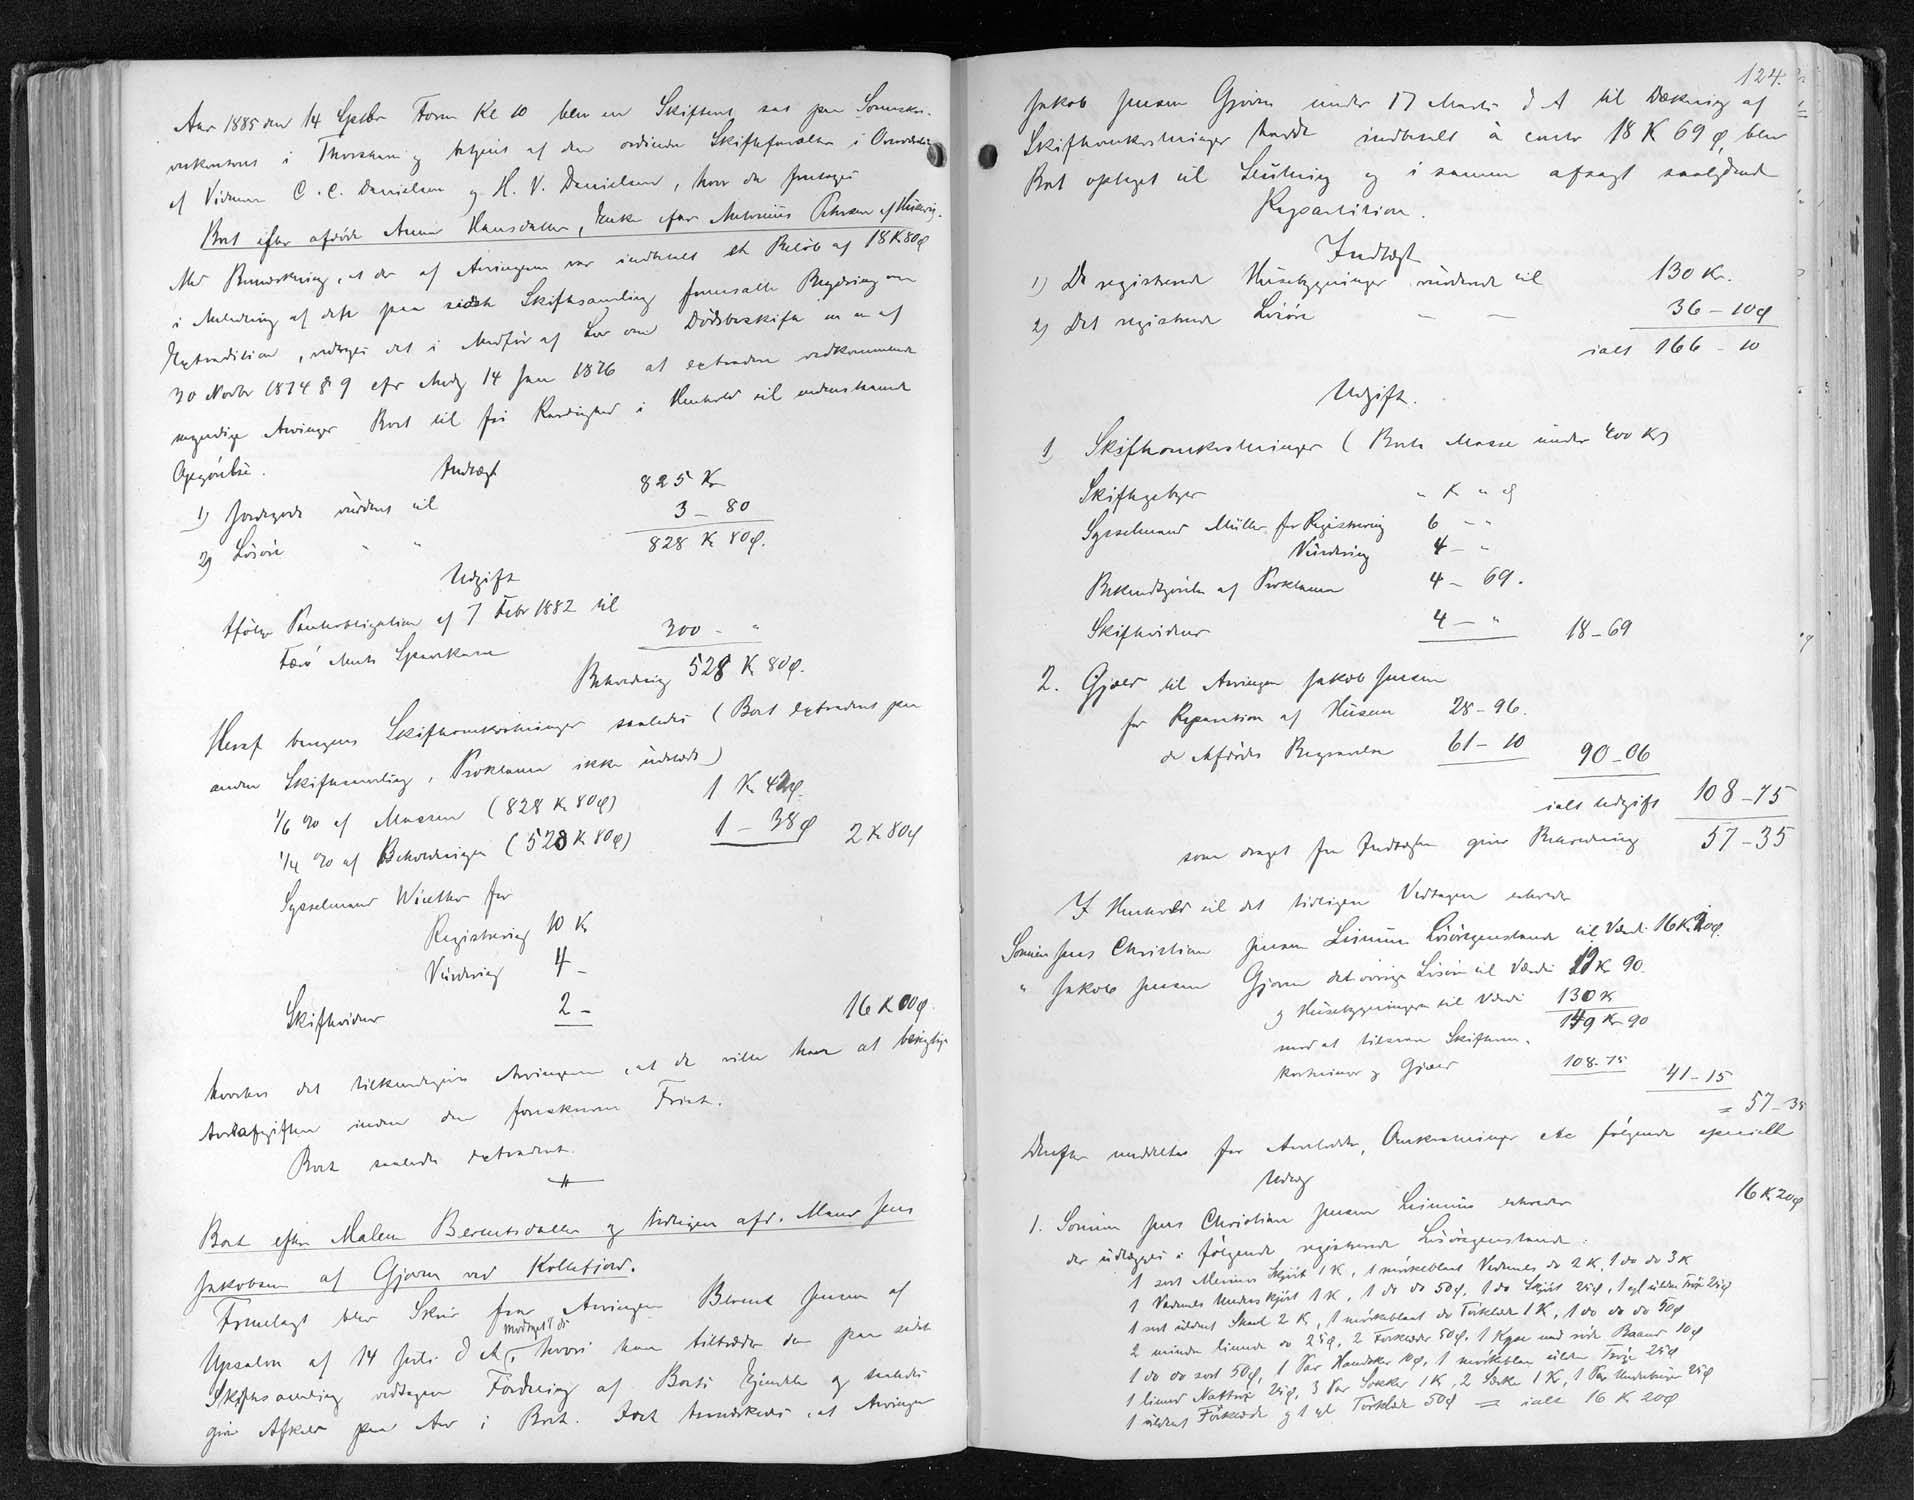 Aar 1885 den 14 Septbr Form Kl 10 blev en Skifteret sat paa Sorenskri-
verkontoret i Thorshavn og betjent af den ordinære Skifteforvalter i Overværelse
af Vidnerne C. C. Danielsen og H. V. Danielsen, hvor da foretoges
Boet efter afdøde Anna Hansdatter, Enke efter Antonius Petersen af Husevig.
Med Bemærkning, at der af Arvingerne var indbetalt et Beløb af 18 K 80 ø
i Anledning af deres paa sidste Skiftesamling fremsatte Begjæring om
Extradition, vedtoges det i Medfør af Lov om Dødsboskifte m m af
30 Novbr 1874 § 9 cfr Anordg 14 Jan 1876 at extradere vedkommende
myndige Arvinger Boet til fri Raadighed i Henhold til nedenstaaende
Opgjørelse.
Indtægt
1) Jordegods vurderet til 825 Kr
2) Løsøre " " 3 - 80
828 Kr 80 ø.
Udgift
Ifølge Panteobligation af 7 Febr 1882 til
Færø Amts Sparekasse 300 - "
Beholdning 528 K 80 ø.
Heraf beregnes Skifteomkostninger saaledes (Boet extraderet paa
anden Skiftesamling, Proklama ikke udstedt)
1/6 % af Massen (828 Kr 80 ø) 1 Kr 42 ø.
1/4 % af Beholdningen (528 K 80 ø) 1 - 38 ø 2 K 80 ø
Sysselmand Winther for
Registrering 10 K
Vurdering 4 -
Skiftevidner 2 - 16 K 00 ø.
hvorhos det tilkjendegives Arvingerne, at de ville have at berigtige
Arveafgiften inden den foreskrevne Frist.
Boet saaledes extraderet.
Boet efter Malene Berentsdatter og tidligere afd. Mand Jens
Jakobsen af Gjoven ved Kollefjord.
Fremlagt blev Skr fra Arvingen Berent Jensen af
Upsalen af 14 Juli d A, modtaget s d, hvori han tiltræder den paa sidste
Skiftesamling vedtagne Fordeling af Boets Ejendele og saaledes
giver Afkald paa Arv i Boet. Idet bemærkedes, at Arvingen
124.
Jakob Jensen Gjoven under 17 Marts d A til Dækning af
Skifteomkostninger havde indbetalt à conto 18 K 69 ø, blev
Boet optaget til Slutning og i samme afsagt saalydende
Repartition.
Indtægt
1) De registrerede Husebygninger vurderede til 130 Kr.
2) Det registrerede Løsøre — — 36 - 10 ø
ialt 166 - 10
Udgift.
1) Skifteomkostninger (Boets Masse under 400 Kr)
Skiftegebyr " K " ø
Sysselmand Müller for Registrering 6 - "
Vurdering 4 - "
Bekendtgjørelse af Proklama 4 - 69.
Skiftevidner 4 - " 18 - 69
2. Gjæld til Arvingen Jakob Jensen
for Reparation af Husene 28 - 96.
de Afdødes Begravelse 61 - 10 90 - 06
ialt Udgift 108 - 75
som draget fra Indtægten giver Beholdning 57 - 35
I Henhold til det tidligere Vedtagne erholder
Sønnen Jens Christian Jensen Løsøregenstande til Værdi 16 K 20 ø.
" Jakob Jensen Gjoven det øvrige Løsøre til Værdi 19 K 90.
og Husebygningen til Værdi 130 K
149 Kr 90
mod at tilsvare Skifteom-
kostninger og Gjæld 108 - 75 41 - 15
= 57 - 35
Derefter meddeltes for Arvelodder, Omkostninger etc følgende specielle
Udlæg
1. Sønnen Jens Christian Jensen erholder 16 K 20 ø
der udlægges i følgende registrerede Løsøregenstande:
1 sort Merinos Skjørt 1 K, 1 mørkeblaat Vadmels do 2 K, 1 do do 3 K
1 Vadmels Underskjørt 1 K, 1 do do 50 ø, 1 do Skjørt 25 ø, 1 gl ulden Trøje 25 ø
1 sort uldent Skaul 2 K, 1 mørkeblaat do Tørklæde 1 K, 1 do do do 50 ø
2 mindre linned do 25 ø, 2 Forklæder 50 ø, 1 Kyse med røde Baand 10 ø
1 do do sort 50 ø, 1 Par Handsker 10 ø, 1 mørkeblaa ulden Trøje 25 ø
1 linned Nattrøje 25 ø, 3 Par Sokker 1 K, 2 Særke 1 K, 1 Par Underbuxer 25 ø
1 uldent Forklæde og 1 gl Tørklæde 50 ø = ialt 16 K 20 ø